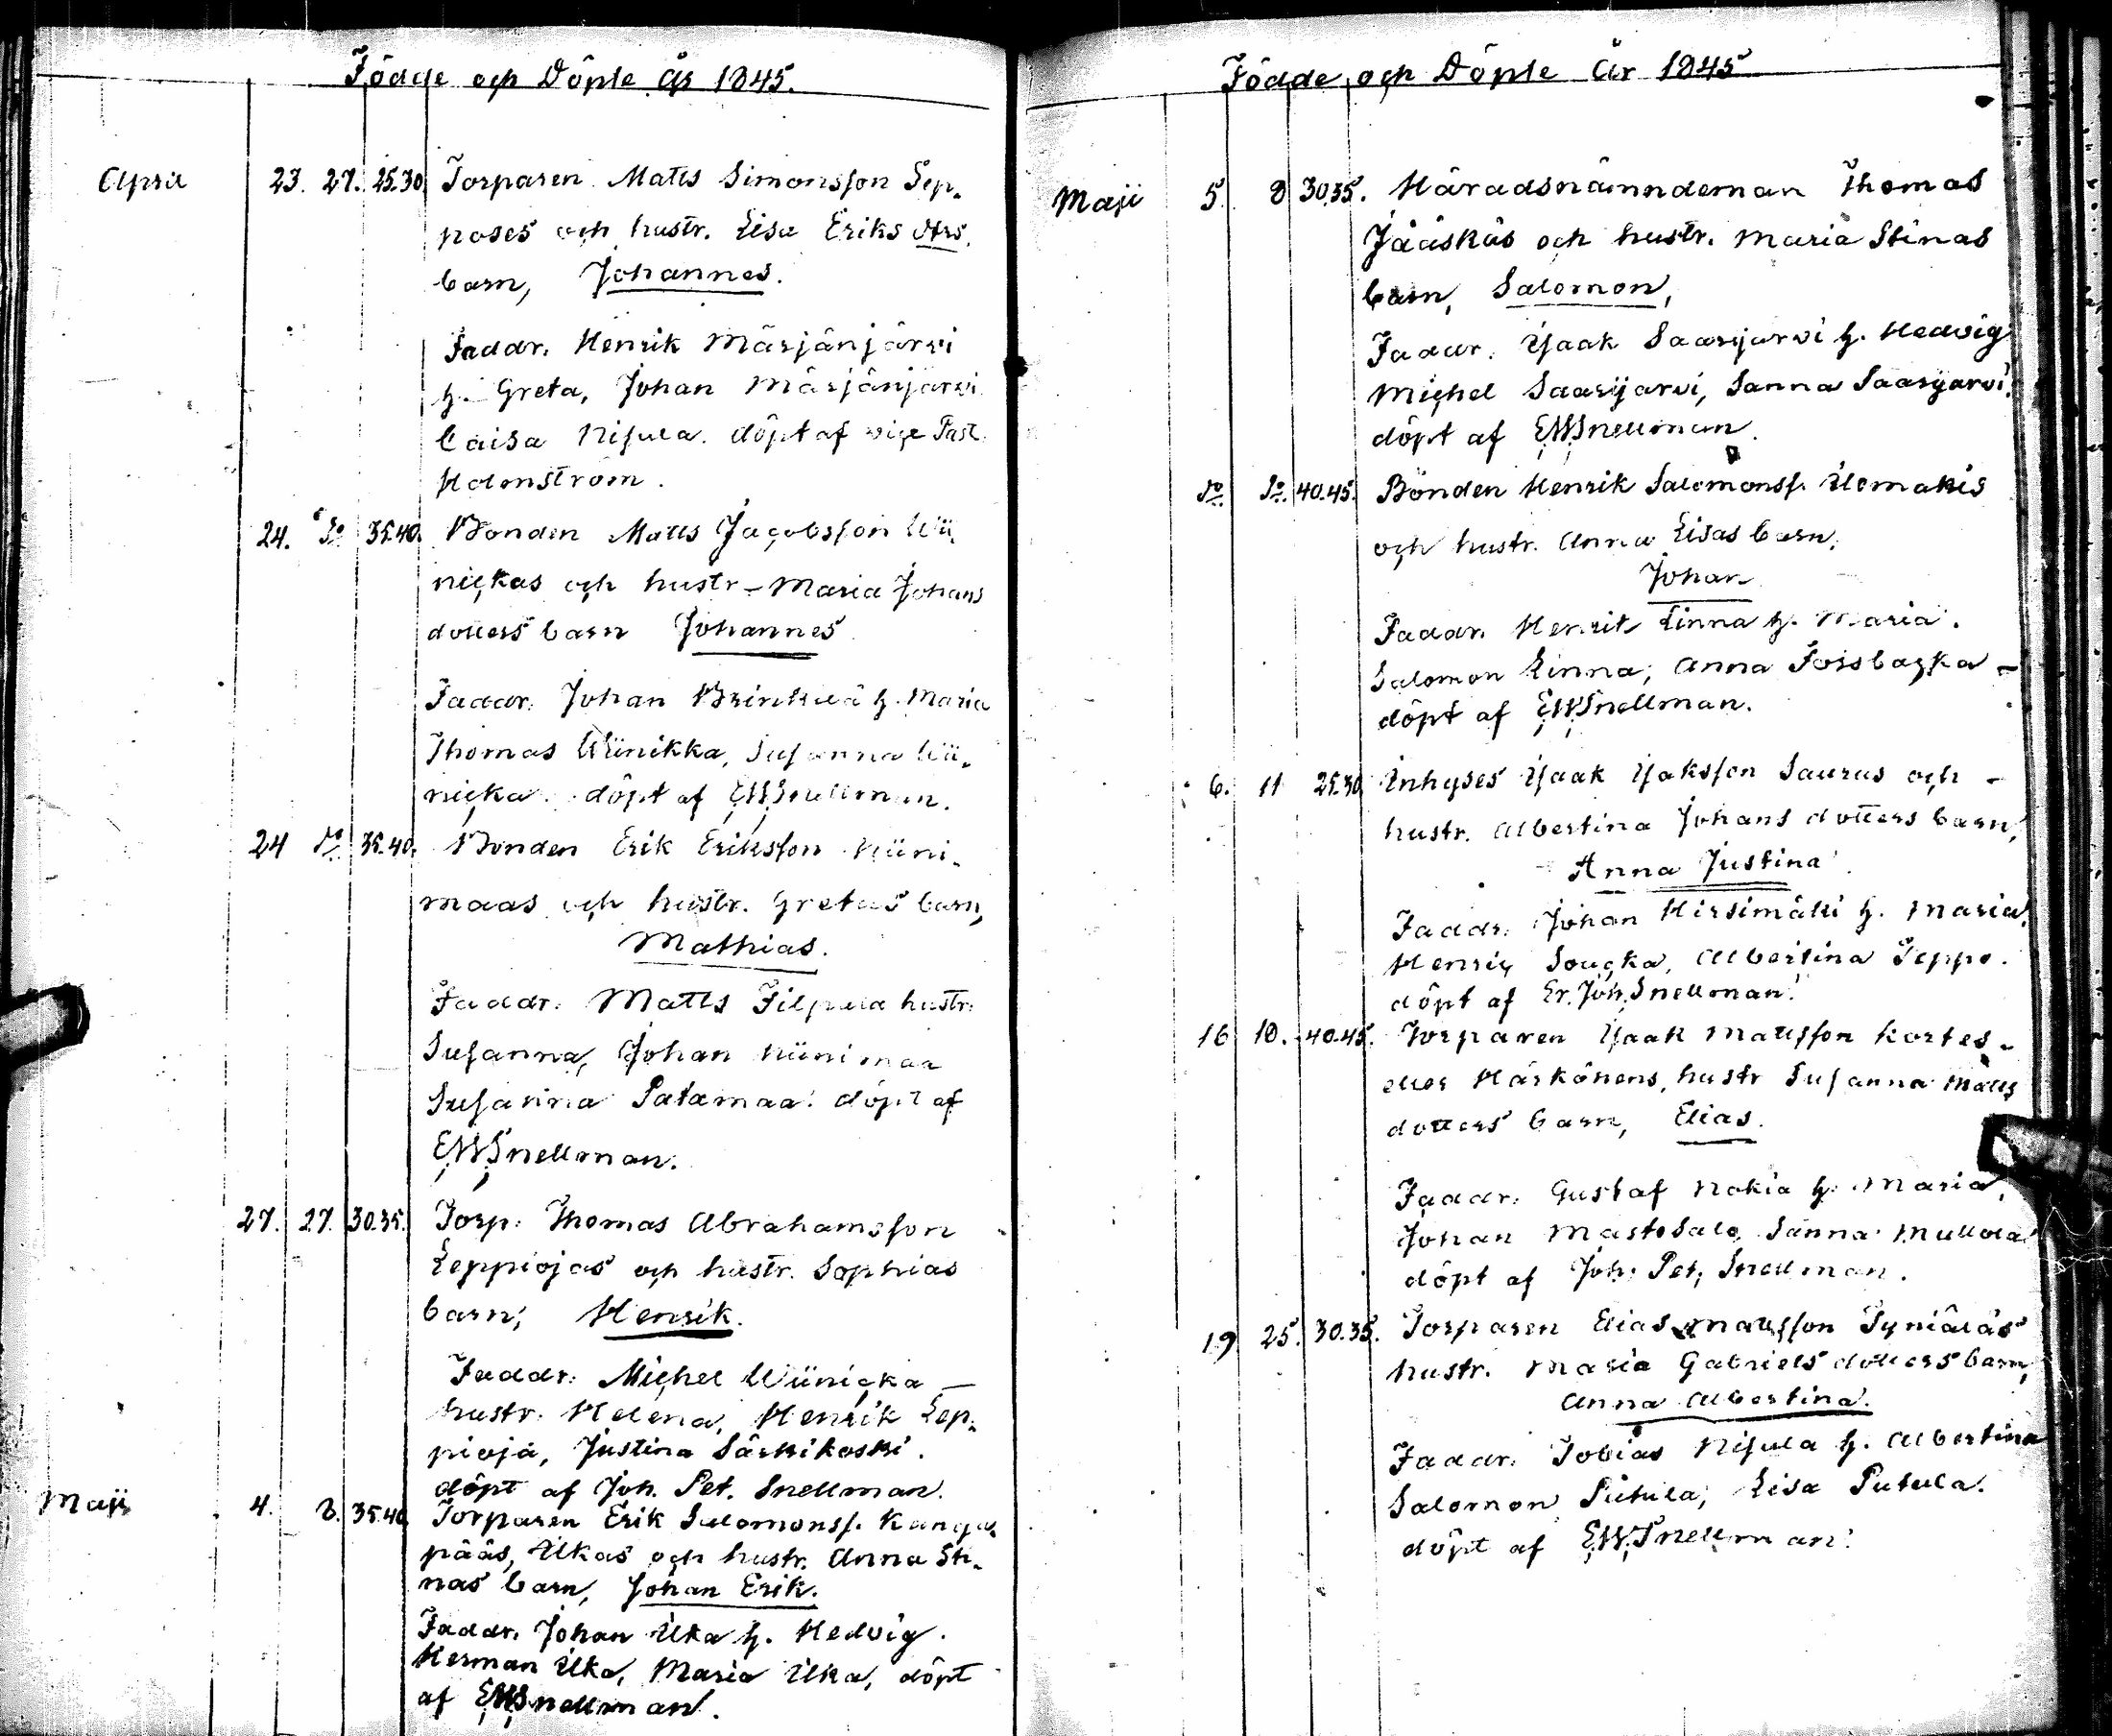 Födde och Döpte år 1845.
April 23. 27. 25.30 Torparen Matts Simonsson Sep-
poses och hustr. Lisa Eriks dtrs
barn, Johannes.
Faddr. Henrik Märjänjärvi
h. Greta, Johan Märjänjärvi
Caisa Nisula. döpt af vice Past.
Holmström.
24. Do 35.40. Bonden Matts Jacobsson Wii-
nickas och hustr. Maria Johans
dotters barn Johannes
Faddr. Johan h. Maria
Thomas Wiinikka, Susanna Wii-
nicka. döpt af EWSnellman.
24 Do 35.40. Bonden Erik Eriksson Niini-
maas och hustr. Gretas barn,
Mathias.
Faddr. Matts Filpula hustr.
Susanna, Johan Niinimaa
Susanna Patamaa. döpt af
EWSnellman.
27. 27. 30.35. Torp. Thomas Abrahamsson
Leppiojas och hustr. Sophias
barn, Henrik.
Faddr. Michel Wiinicka
hustr. Helena, Henrik Lep-
pioja, Justina Särkikoski.
döpt af Joh. Pet. Snellman.
Maji 4. 8. 35.40 Torparen Erik Salomonss. Kangas
pääs, Ilkas och hustr. Anna Sti-
nas barn, Johan Erik.
Faddr. Johan Ilka h. Hedvig.
Herman Ilka, Maria Ilka, döpt
af EWSnellman.
Födde och Döpte år 1845
Maji 5. 8 30.35. Häradsnämndeman Thomas
Jääskäs och hustr. Maria Stinas
barn, Salomon,
Faddr. Isaak Saarijärvi h. Hedvig
Michel Saarijärvi, Sanna Saarijärvi.
döpt af EWSnellman.
Do Do 40.45. Bonden Henrik Salomonss. Ilomäkis
och hustr. Anna Lisas barn,
Johan
Faddr. Henrik Linna h. Maria.
Salomon Linna, Anna Forsbacka
döpt af EWSnellman.
6. 11 25.30 Inhyses Isaak Isaksson Saurus och
hustr. Albertina Johans dotters barn,
Anna Justina
Faddr. Johan Hirsimäki h. Maria,
Henric Soucka, Albertina Seppo.
döpt af Er. Joh. Snellman.
16 18. 40.45. Torparen Isaak Mattsson Kortes-
eller Härkönens, hustr Susanna Matts
dotters barn, Elias.
Faddr. Gustaf Nokia h. Maria,
Johan Mastosalo, Sanna Mullola
döpt af Joh. Pet. Snellman.
19 25. 30.35. Torparen Elias Mattsson Syniäläs
hustr. Maria Gabriels dotters barn,
Anna Albertina.
Faddr. Tobias Nisula h. Albertina
Salomon Putula, Lisa Putula.
döpt af E.W.Snellman.